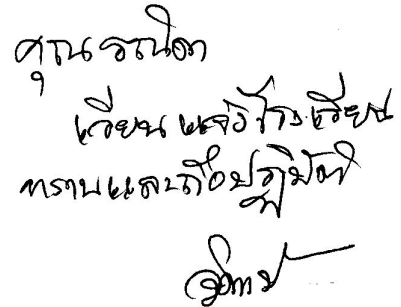 คุณ
เวียนแจ้งโรงเรียน
ทราบและถือปฏิบัติ